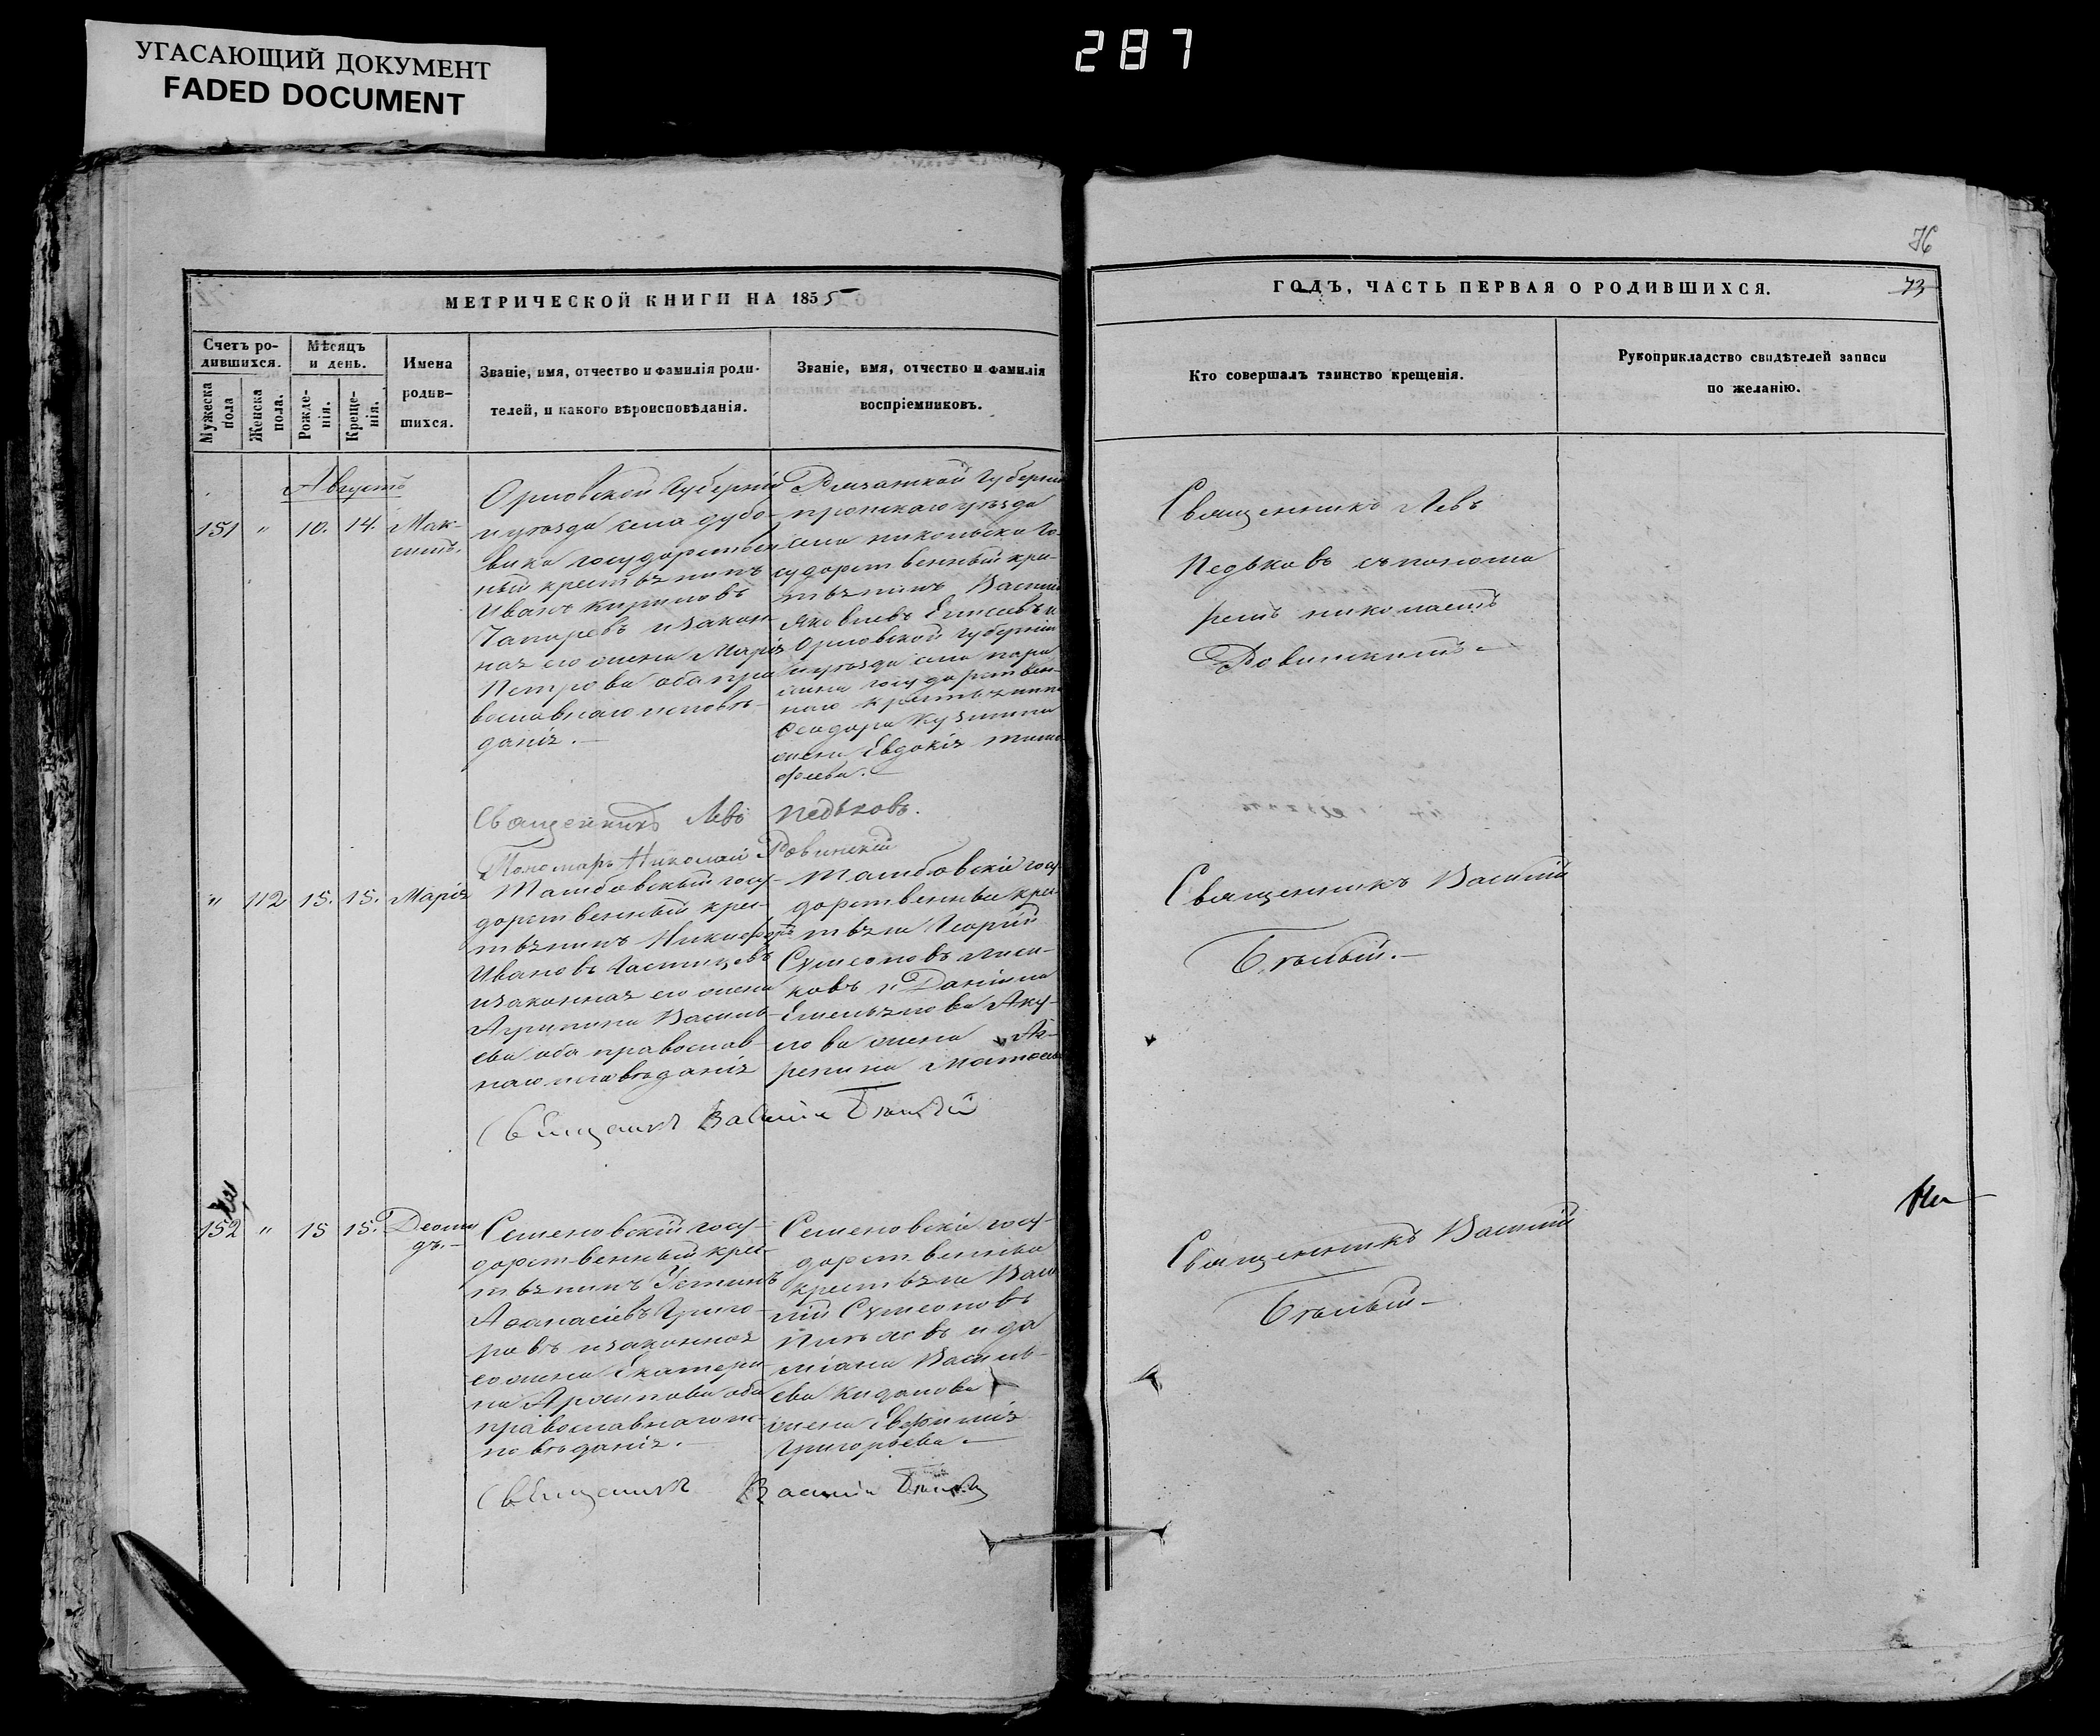 УГАСАЮЩИЙ ДОКУМЕНТ
FADED DOCUMENT
287
МЕТРИЧЕСКОЙ КНИГИ НА 1855
Счетъ ро-
дившихся.
Мѣсяцъ
и день.
Мужеска
пола
Женска
пола.
Рожде-
нія.
Креще-
нія.
Имена
родив-
шихся.
Званіе, имя, отчество и фамилія роди-
телей, и какого вѣроисповѣданія.
Званіе, имя, отчество и фамилія
воспріемниковъ.
Августъ
151 " 10. 14. Мак-
симъ.
Орловской Губерніи
и уѣзда села дубо-
вика государствен
ный крестьянинъ
Иванъ Кириловъ
и закон
ная его жена Марія
Петрова оба пра
вославнаго исповѣ-
данія.—
Губерніи
пронскаго уѣзда
села никольска Го-
сударственный кре-
стьянинъ Васили
Яковлевъ Елисеевъ и
Орловской Губерніи
и уѣзда села
государствен-
наго крестьянина
Феодора Кузмина
жена Евдокія тимо
феева.—
Священникъ Левъ Педьковъ.
Пономарь Николай Ровинскій
" 112 15. 15. Марія
Тамбовскый госу-
дарственный крес-
тьянинъ Никифоръ
Ивановъ
и законная его жена
Агрипина Василь-
ева оба православ-
наго исповѣданія
Тамбовскіе госу-
дарственные крес-
тьяне Георгій
Сумеоновъ
ковъ и Даніила
Емельянова Яку-
това жена Аг-
репина Матвеева
Священникъ Василій Бѣлый
152 " 15 15. Деоми
дъ.—
Семеновскій госу-
дарственный крес-
тьянинъ Устинъ
Афанасіевъ Григо-
ровъ и законная
его жена Екатери-
на Архипова оба
православнаго ис-
повѣданія.—
Семеновскіе госу-
дарственные
крестьяне Васи
лій Сумеоновъ
и да
міана Василь-
ева Кидалова
жена Евфимія
Григорьева.—
Священникъ Василій Бѣлый
76
ГОДЪ, ЧАСТЬ ПЕРВАЯ О РОДИВШИХСЯ.
73
Кто совершалъ таинство крещенія.
Рукоприкладство свидѣтелей записи
по желанію.
Священникъ Левъ
Педьковъ съ понома
ремъ николаемъ
Ровинскимъ—
Священникъ Василій
Бѣлый.—
Священникъ Василій
Бѣлый—